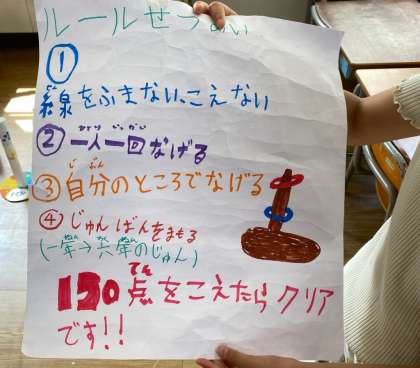 ルールせつめい
①
線をふまない、こえない
②一人一回なげる
③自分のところでなげる
④じゅんばんをまもる
(一年→六年のじゅん)
150点をこえたらクリア
です!!